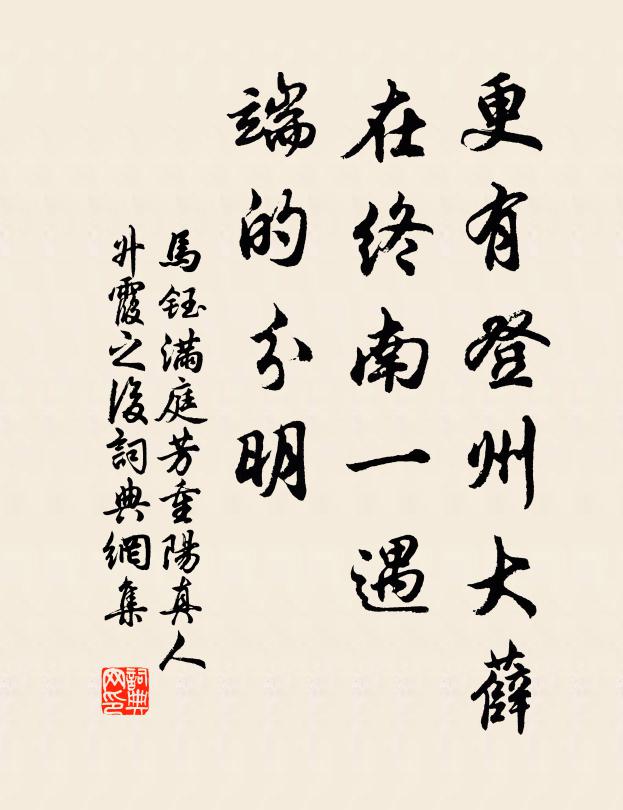 更有登州大薛
在終南一遇
端的分明
馬鈺滿庭芳重陽真人
升霞之後詞典網集
詞典網印